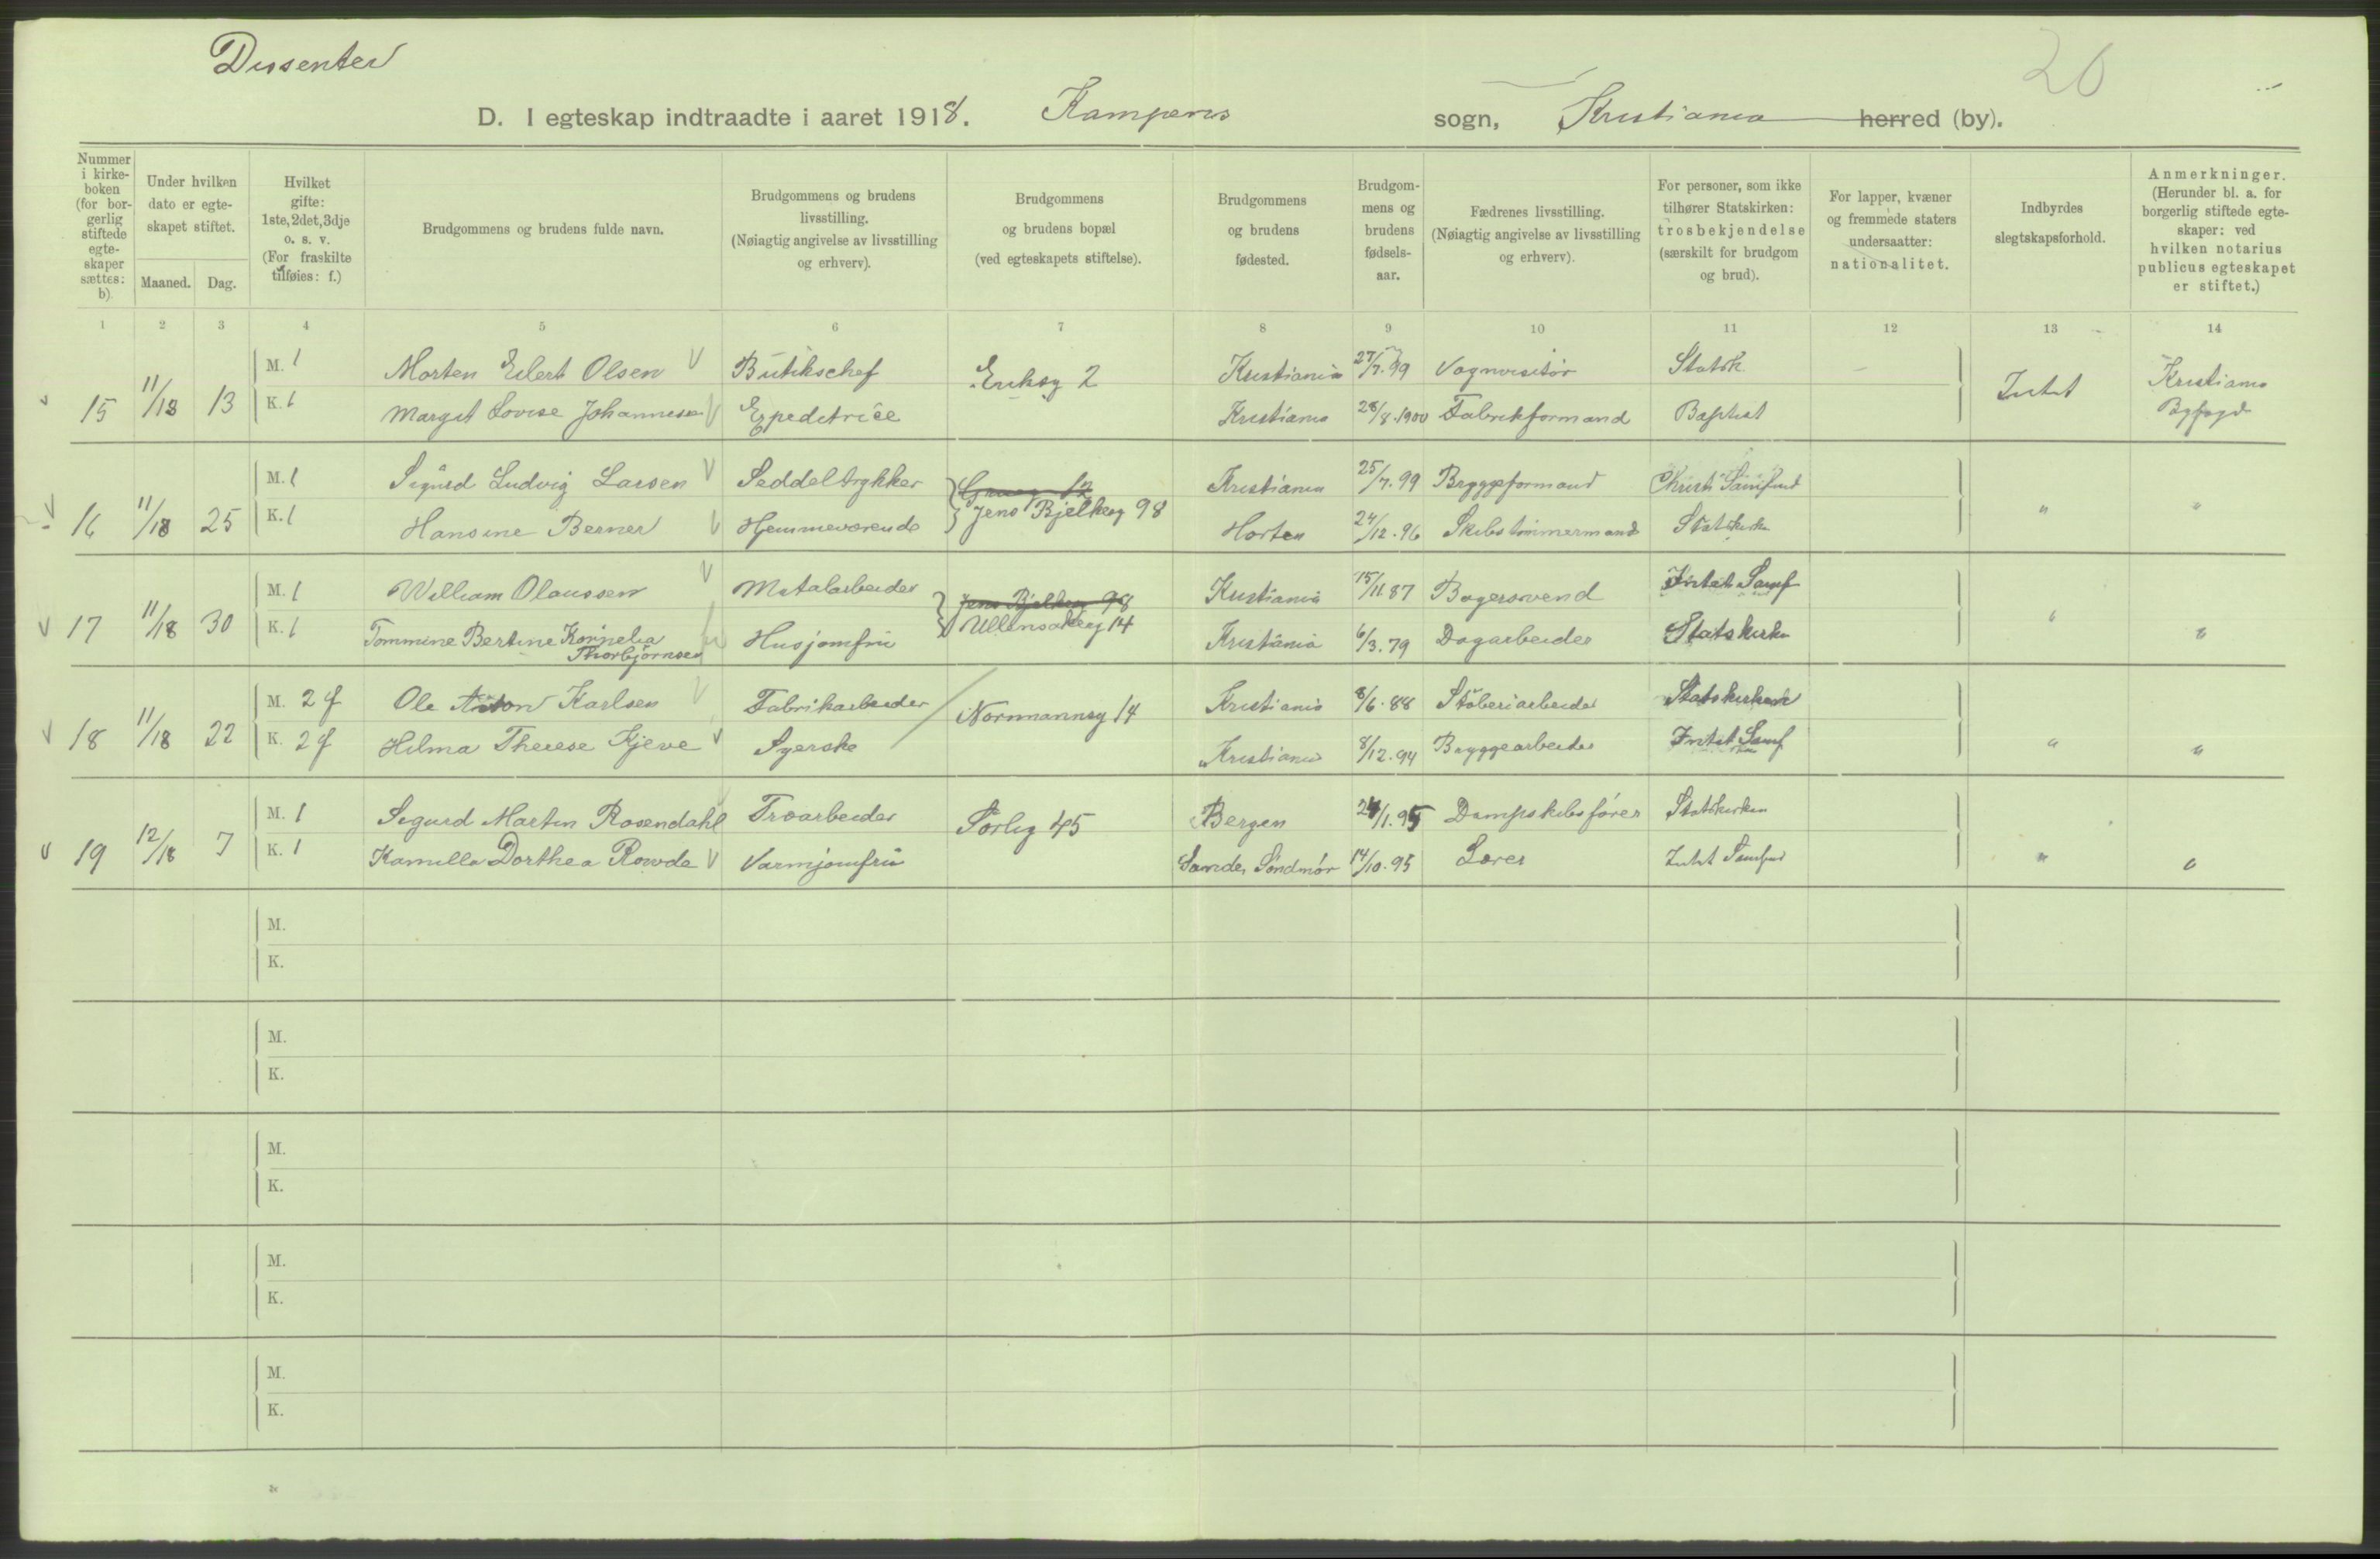 Dissenter
26
D. I egteskap indtraadte i aaret 1918. Kampens sogn, Kristiania herred (by).
Nummer i kirkeboken (for borgerlig stiftede egteskaper sættes: b)
Under hvilken dato er egteskapet stiftet.
Maaned. Dag.
Hvilket gifte: 1ste, 2det, 3dje o. s. v. (For fraskilte tilføies: f.)
Brudgommens og brudens fulde navn.
Brudgommens og brudens livsstilling. (Nøiagtig angivelse av livsstilling og erhverv).
Brudgommens og brudens bopæl (ved egteskapets stiftelse).
Brudgommens og brudens fødested.
Brudgommens og brudens fødselsaar.
Fædrenes livsstilling. (Nøiagtig angivelse av livsstilling og erhverv).
For personer, som ikke tilhører Statskirken: trosbekjendelse (særskilt for brudgom og brud).
For lapper, kvæner og fremmede staters undersaatter: nationalitet.
Indbyrdes slegtskapsforhold.
Anmerkninger. (Herunder bl. a. for borgerlig stiftede egteskaper: ved hvilken notarius publicus egteskapet er stiftet.)
1 2 3 4 5 6 7 8 9 10 11 12 13 14
15 11/18 13 M. 1 Morten Eilert Olsen Butikschef Eriksg 2 Kristiania 27/7.99 Vognvisitør Statsk. Intet Kristiania
K. 1 Margit Lovise Johannesen Expeditrice Kristiania 28/8.1900 Fabrikformand Baptist Byfogd
16 11/18 25 M. 1 Sigurd Ludvig Larsen Seddeltrykker Kristiania 25/7.99 Bryggeformand Christi Samfund " "
K. 1 Hansine Berner Hjemmeværende Jens Bjelkesg 98 Horten 24/12.96 Skibstømmermand Statskirken
17 11/18 30 M. 1 William Olaussen Metalarbeider Jens Bjelkesg 98 Kristiania 15/11.87 Bagersvend Intet Samf " "
K. 1 Tommine Bertine Kornelia Thorbjørnsen Husjomfru Ullensakerg 14 Kristiania 6/3.79 Dagarbeider Statskirke
18 11/18 22 M. 2 f Ole Anton Karlsen Fabrikarbeider Normannsg 14 Kristiania 8/6.88 Støberiarbeider Statskirken " "
K. 2 f Hilma Therese Kjeve Syerske Kristiania 8/12.94 Bryggearbeider Intet Samf
19 12/18 7 M. 1 Sigurd Martin Rosendahl Træarbeider Sørlig 45 Bergen 24/1.95 Dampskibsfører Statskirken " "
K. 1 Kamilla Dorthea Rovde Varmjomfru Sande, Søndmør 14/10.95 Lærer Intet Samfund
M.
K.
M.
K.
M.
K.
M.
K.
M.
K.